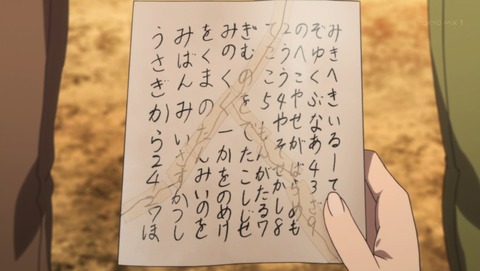 みきへきいるーて
ぞゆくぶなあ43さ9
のへこやせがばらのも
2うう4やそせかし8
てここ5もんがたる7
ぎむのをてたこしじぜ
みのくーかをのめけ
をくまのたんみいのを
みばんみいさすかつし
うさぎから2427ほ